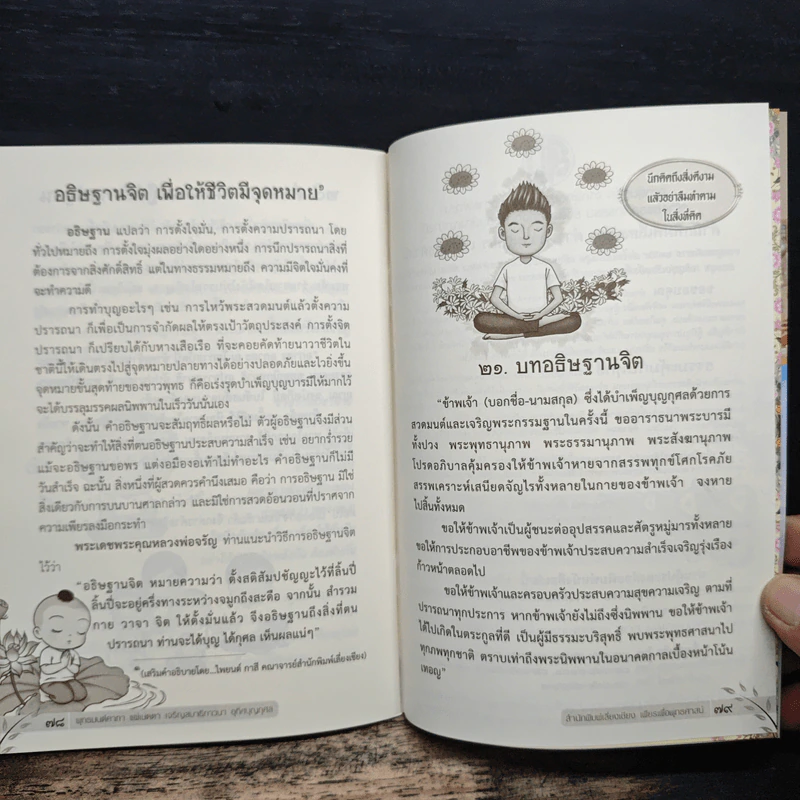 อธิษฐานจิต เพื่อให้ชีวิตมีจุดหมาย
อธิษฐาน แปลว่า การตั้งใจมั่น, การตั้งความปรารถนา โดย
ทั่วไปหมายถึง การตั้งใจมุ่งผลอย่างใดอย่างหนึ่ง การนึกปรารถนาสิ่งที่
ต้องการจากสิ่งศักดิ์สิทธิ์ แต่ในทางธรรมหมายถึง ความมีจิตใจมั่นคงที่
จะทำความดี
การทำบุญอะไรๆ เช่น การไหว้พระสวดมนต์แล้วตั้งความ
ปรารถนา ก็เพื่อเป็นการจำกัดผลให้ตรงเป้าวัตถุประสงค์ การตั้งจิต
ปรารถนา ก็เปรียบได้กับหางเสือเรือ ที่จะคอยคัดท้ายนาวาชีวิตใน
ชาตินี้ให้เดินตรงไปสู่จุดหมายปลายทางได้อย่างปลอดภัยและไวยิ่งขึ้น
จุดหมายขั้นสุดท้ายของชาวพุทธ ก็คือเร่งรุดบำเพ็ญบุญบารมีให้มากไว้
จะได้บรรลุมรรคผลนิพพานในเร็ววันนั่นเอง
ดังนั้น คำอธิษฐานจะสัมฤทธิ์ผลหรือไม่ ตัวผู้อธิษฐานจึงมีส่วน
สำคัญว่าจะทำให้สิ่งที่ตนอธิษฐานประสบความสำเร็จ เช่น อยากร่ำรวย
แม้จะอธิษฐานขอพร แต่งอมืองอเท้าไม่ทำอะไร คำอธิษฐานก็ไม่มี
วันสำเร็จ ฉะนั้น สิ่งหนึ่งที่ผู้สวดควรคำนึงเสมอ คือว่า การอธิษฐาน มิใช่
สิ่งเดียวกับการบนบานศาลกล่าว และมิใช่การสวดอ้อนวอนที่ปราศจาก
ความเพียรลงมือกระทำ
พระเดชพระคุณหลวงพ่อจรัญ ท่านแนะนำวิธีการอธิษฐานจิต
ไว้ว่า
"อธิษฐานจิต หมายความว่า ตั้งสติสัมปชัญญะไว้ที่ลิ้นปี่
ลิ้นปี่จะอยู่ครึ่งทางระหว่างจมูกถึงสะดือ จากนั้น สำรวม
กาย วาจา จิต ให้ตั้งมั่นแล้ว จึงอธิษฐานถึงสิ่งที่ตน
ปรารถนา ท่านจะได้บุญ ได้กุศล เห็นผลแน่ๆ"
(เสริมคำอธิบายโดย...ไพยนต์ กาสี คณาจารย์สำนักพิมพ์เลี่ยงเชียง)
๗๘ พุทธมนต์คาถา แผ่เมตตา เจริญสมาธิภาวนา อุทิศบุญกุศล
นึกคิดถึงสิ่งดีงาม
แล้วอย่าลืมทำตาม
ในสิ่งที่คิด
๒๑. บทอธิษฐานจิต
"ข้าพเจ้า (บอกชื่อ-นามสกุล) ซึ่งได้บำเพ็ญบุญกุศลด้วยการ
สวดมนต์และเจริญพระกรรมฐานในครั้งนี้ ขออาราธนาพระบารมี
ทั้งปวง พระพุทธานุภาพ พระธรรมานุภาพ พระสังฆานุภาพ
โปรดอภิบาลคุ้มครองให้ข้าพเจ้าหายจากสรรพทุกข์โศกโรคภัย
สรรพเคราะห์เสนียดจัญไรทั้งหลายในกายของข้าพเจ้า จงหาย
ไปสิ้นทั้งหมด
ขอให้ข้าพเจ้าเป็นผู้ชนะต่ออุปสรรคและศัตรูหมู่มารทั้งหลาย
ขอให้การประกอบอาชีพของข้าพเจ้าประสบความสำเร็จเจริญรุ่งเรือง
ก้าวหน้าตลอดไป
ขอให้ข้าพเจ้าและครอบครัวประสบความสุขความเจริญ ตามที่
ปรารถนาทุกประการ หากข้าพเจ้ายังไม่ถึงซึ่งนิพพาน ขอให้ข้าพเจ้า
ได้ไปเกิดในตระกูลที่ดี เป็นผู้มีธรรมะบริสุทธิ์ พบพระพุทธศาสนาไป
ทุกภพทุกชาติ ตราบเท่าถึงพระนิพพานในอนาคตกาลเบื้องหน้าโน้น
เทอญ"
สำนักพิมพ์เลี่ยงเชียง เพียรเพื่อพุทธศาสน์ ๗๙